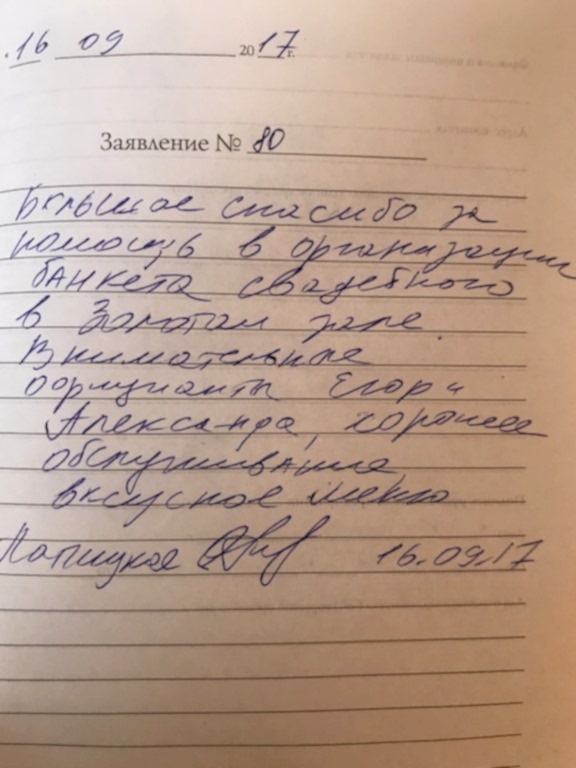 16 09 2017г.
Заявление № 80
Большое спасибо за
помощь в организации
банкета свадебного
в Золотом зале.
Внимательные
официанты Егор и
Александра, хорошее
обслуживание
вкусное меню
16.09.17